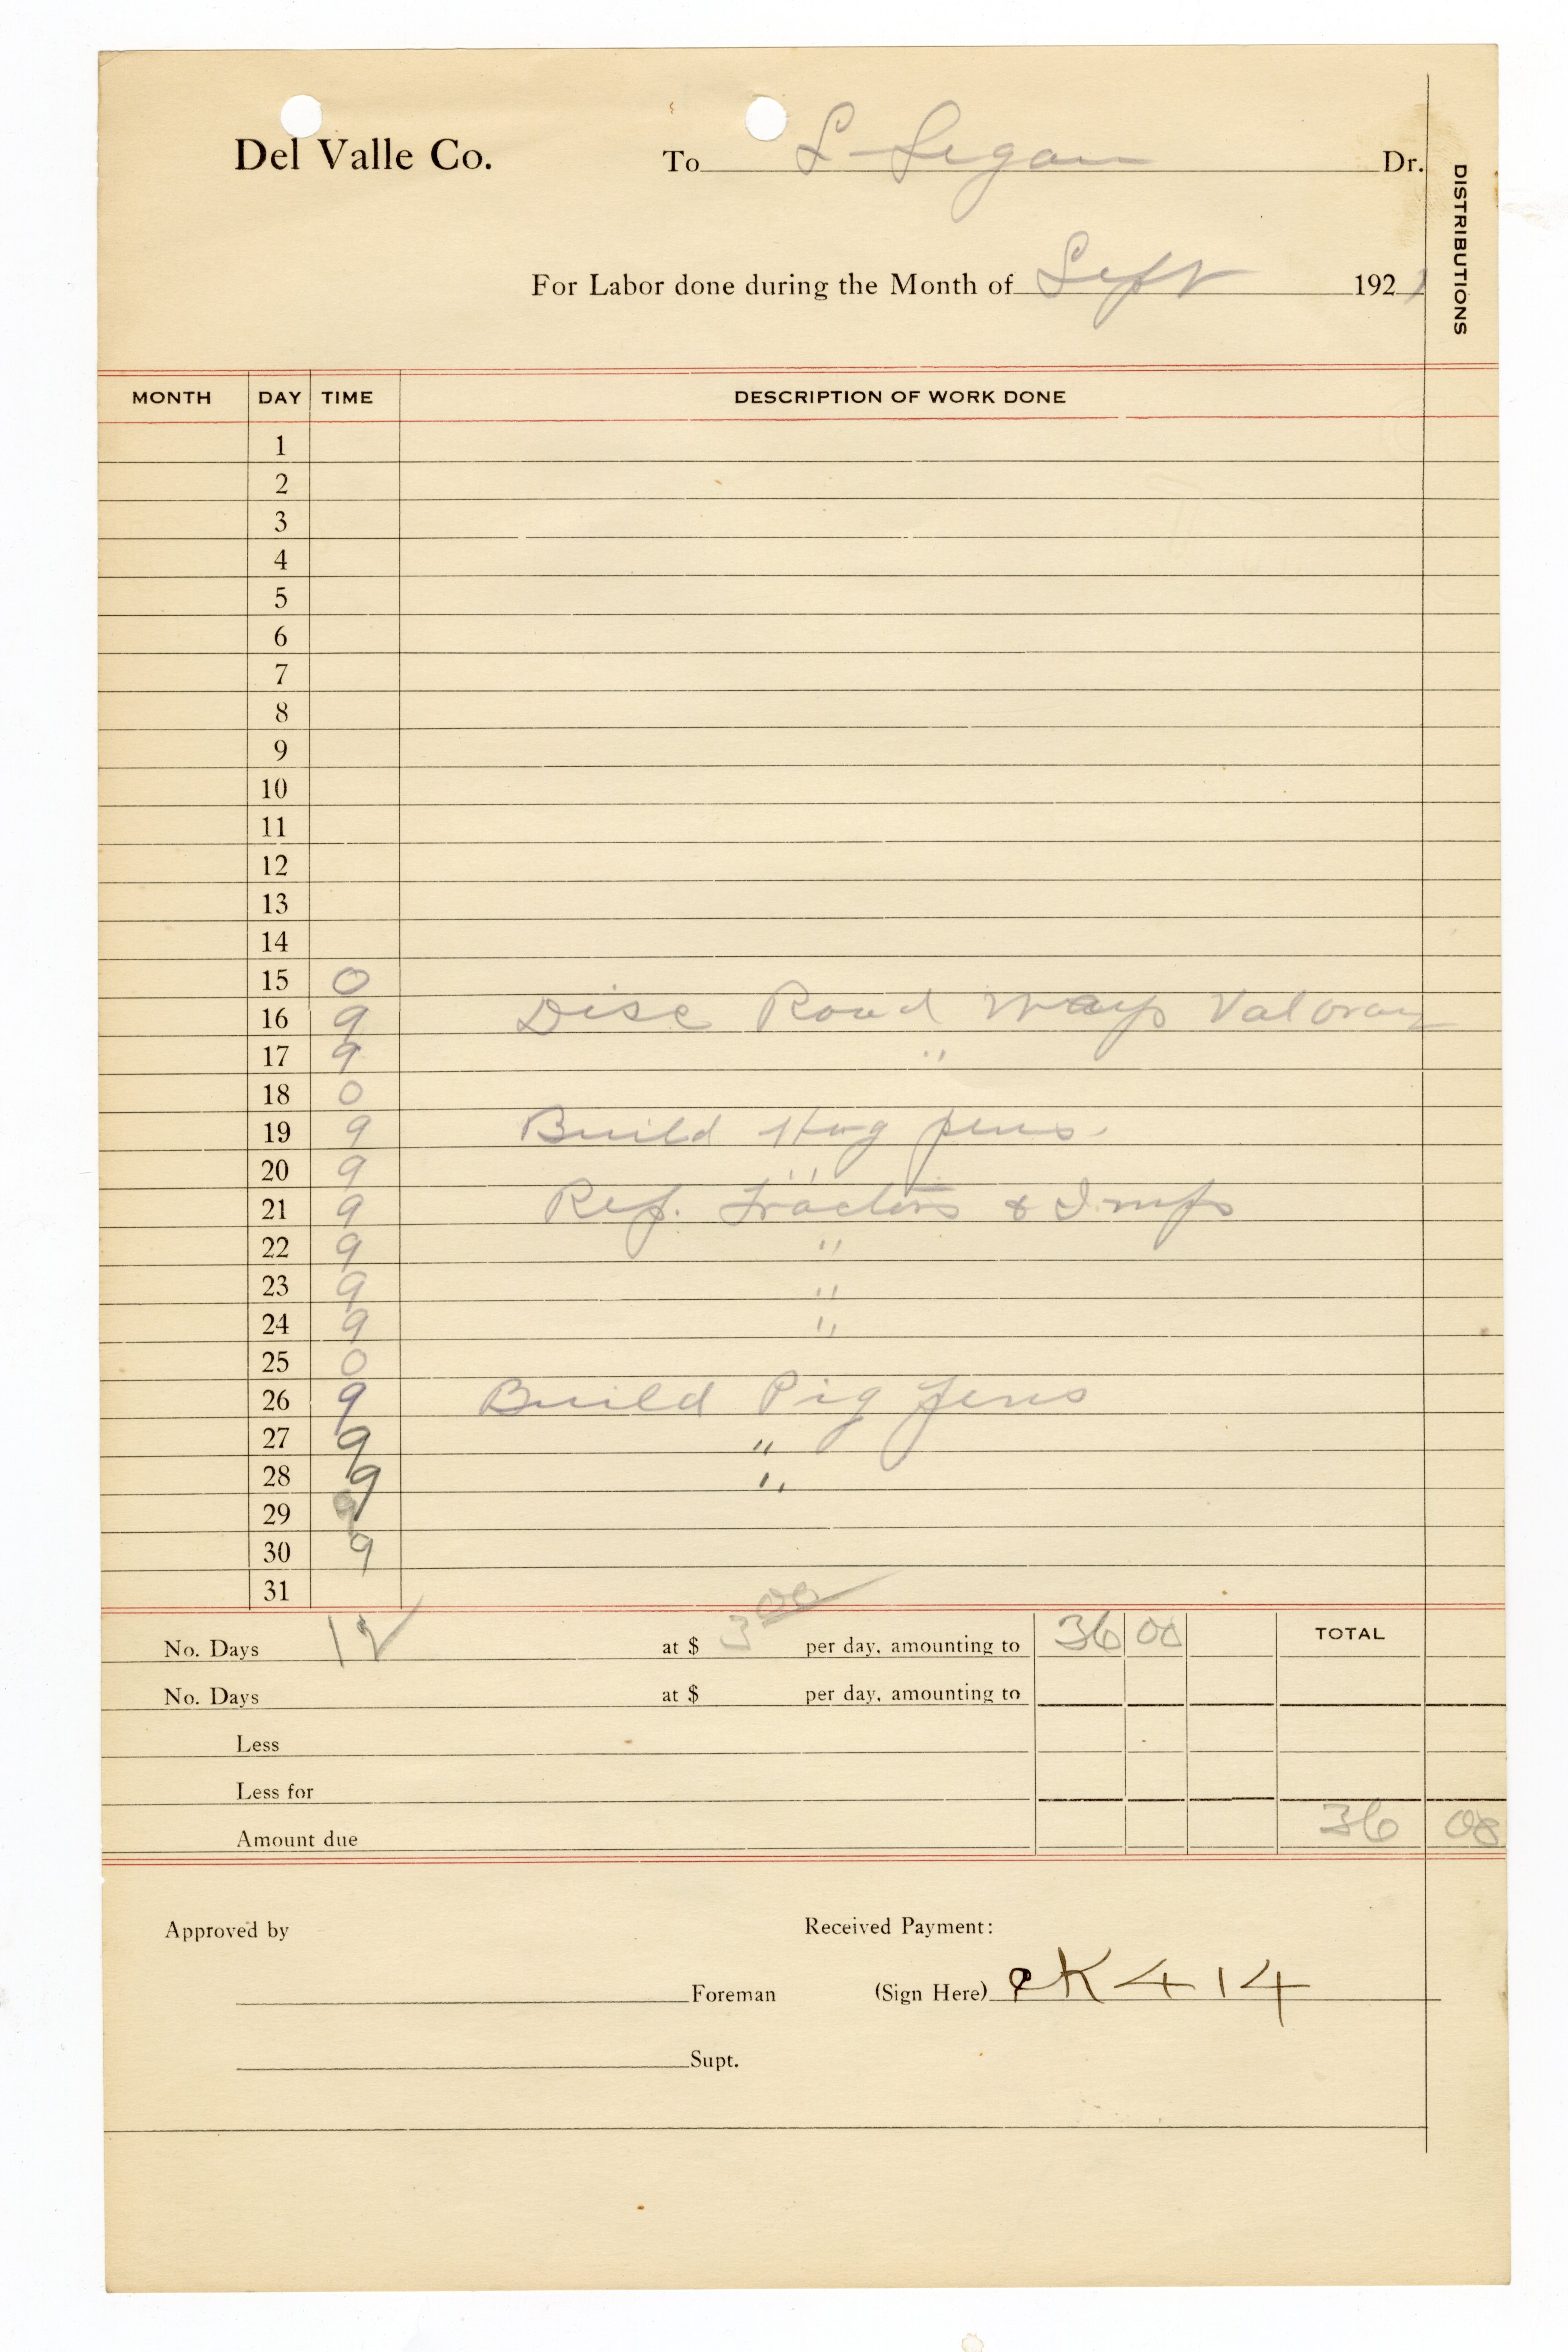 Del Valle Co. To L Segan Dr.
DISTRIBUTIONS
For Labor done during the Month of Sept 1921
MONTH DAY TIME DESCRIPTION OF WORK DONE
1
2
3
4
5
6
7
8
9
10
11
12
13
14
15 0
16 9 Disc Road Ways Valoray
17 9 "
18 0
19 9 Build Hog pens.
20 9 "
21 9 Rep. Tractors & Imps
22 9 "
23 9 "
24 9 "
25 0
26 9 Build Pig Pens
27 9 "
28 9 "
29
30 9
31
No. Days 12 at $ 3 00 per day, amounting to 36 00 TOTAL
No. Days at $ per day, amounting to
Less
Less for
Amount due 36 00
Approved by Received Payment:
Foreman (Sign Here) CK 414
Supt.